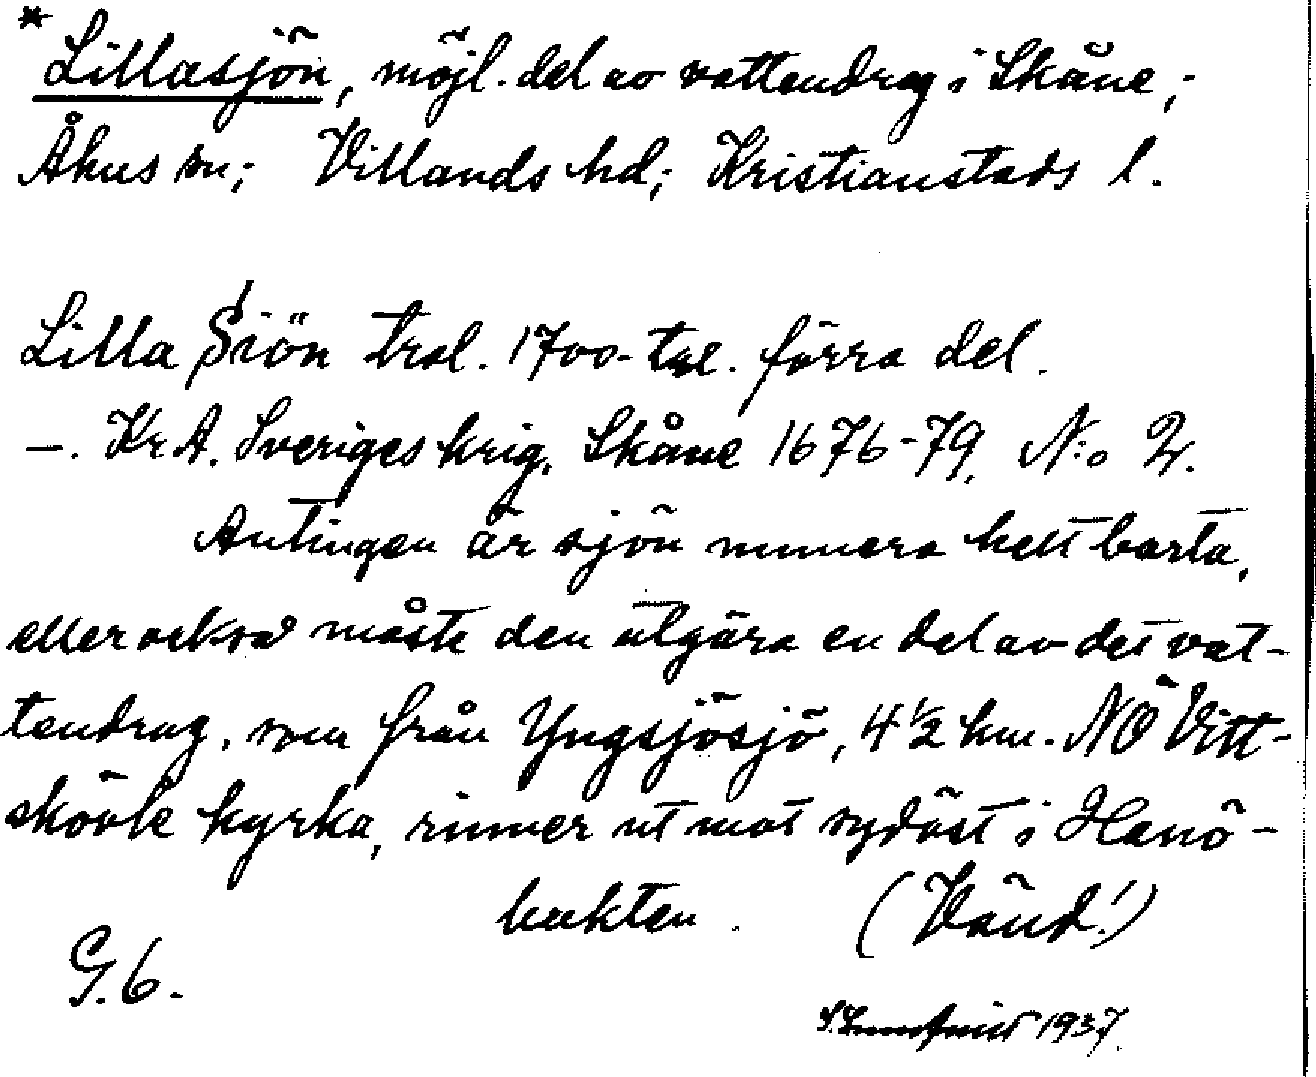 * Lillasjön, möjl. del av vattendrag i Skåne,-
Åhus sn; Villands hd; Kristianstads l.
Lilla Siön trol. 1700-tal. förra del.
—. KrA. Sveriges krig, Skåne 1676-79, N:o 2.
Antingen är sjön numera helt borta,
eller också måste den utgöra en del av det vat-
tendrag, som från Yngsjösjö, 4 ½ km. NÖ Vitt-
skövle kyrka, rinner ut mot sydöst i Hanö-
bukten. (Vänd!)
G.6.
1937.